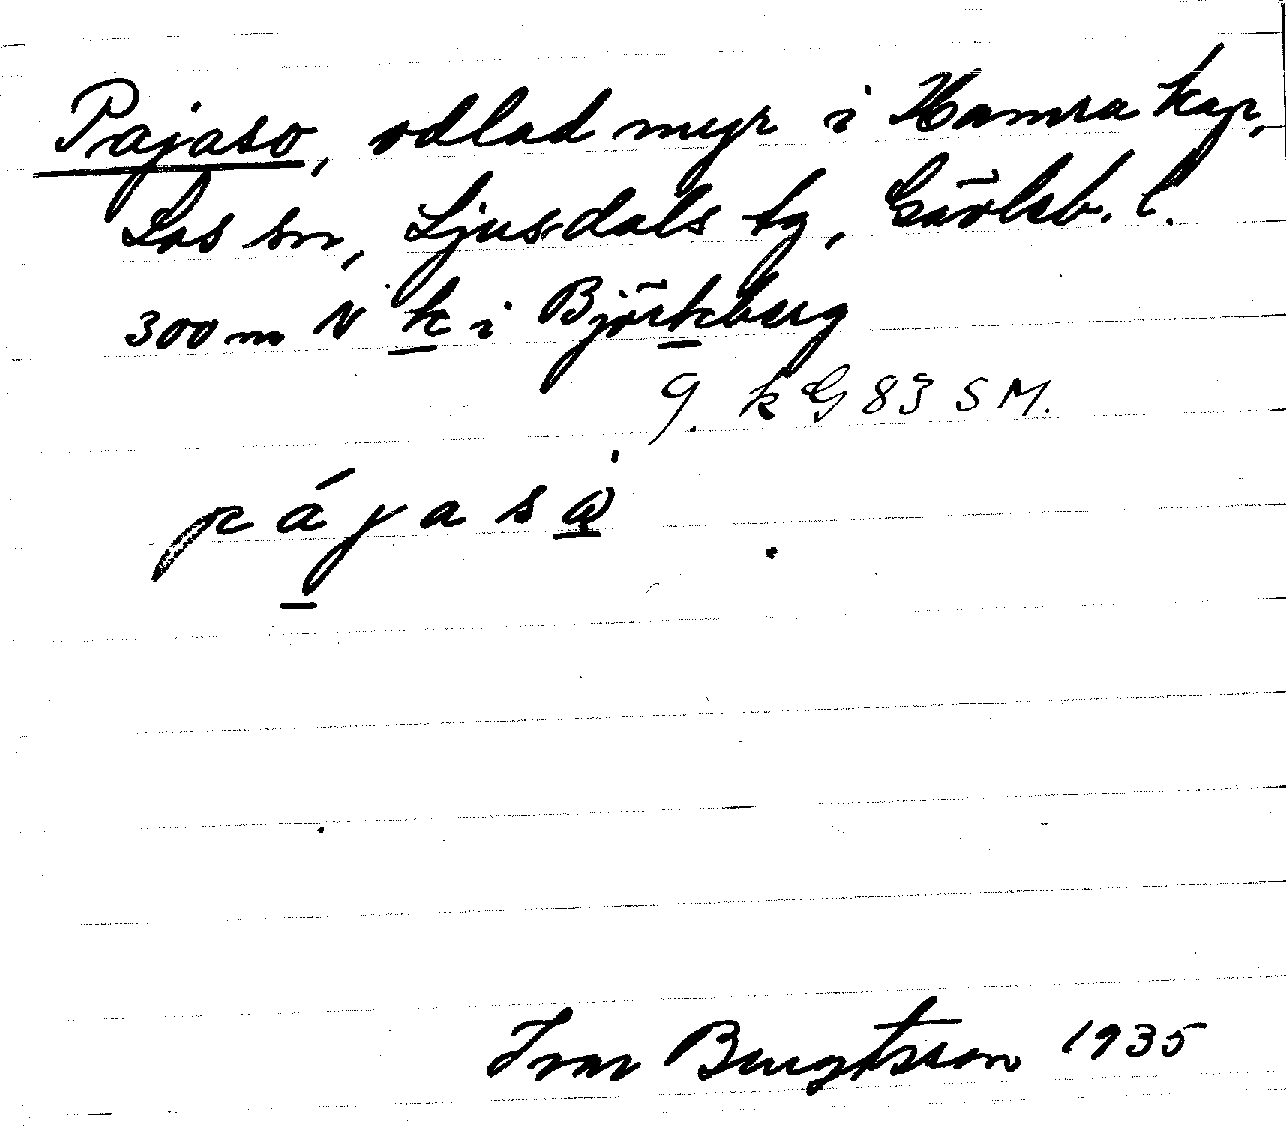 Pajaso, odlad myr i Hamra kap,
Los sn, Ljusdals tg, Gävleb. l.
300 m N k i Björkberg
9. k G 83 S M.
pájaså
Ivar Bengtsson 1935